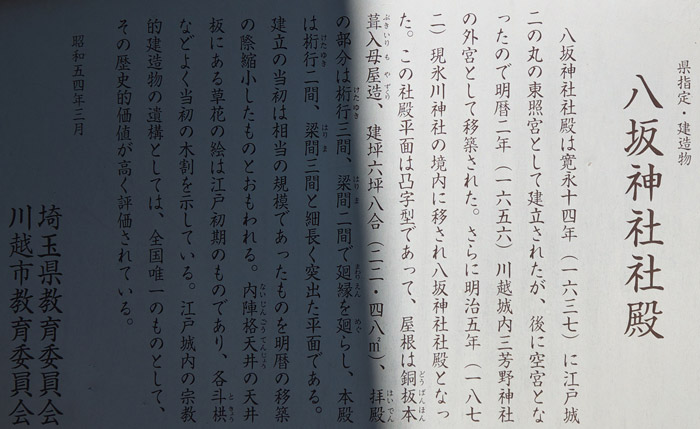 県指定・建造物
八坂神社社殿
八坂神社社殿は寛永十四年（一六三七）に江戸城
二の丸の東照宮として建立されたが、後に空宮とな
ったので明暦二年（一六五六）川越城内三芳野神社
の外宮として移築された。さらに明治五年（一八七
二）現氷川神社の境内に移され八坂神社社殿となっ
た。この社殿平面は凸字型であって、屋根は銅板本
葺入母屋造、建坪六坪八合（二二・四八㎡）、拝殿
の部分は桁行三間、梁間二間で廻縁を廻らし、本殿
は桁行二間、梁間三間と細長く突出た平面である。
建立の当初は相当の規模であったものを明暦の移築
の際縮小したものとおもわれる。内陣格天井の天井
板にある草花の絵は江戸初期のものであり、各斗栱
などよく当初の木割を示している。江戸城内の宗教
的建造物の遺構としては、全国唯一のものとして、
その歴史的価値が高く評価されている。
昭和五四年三月
埼玉県教育委員会
川越市教育委員会